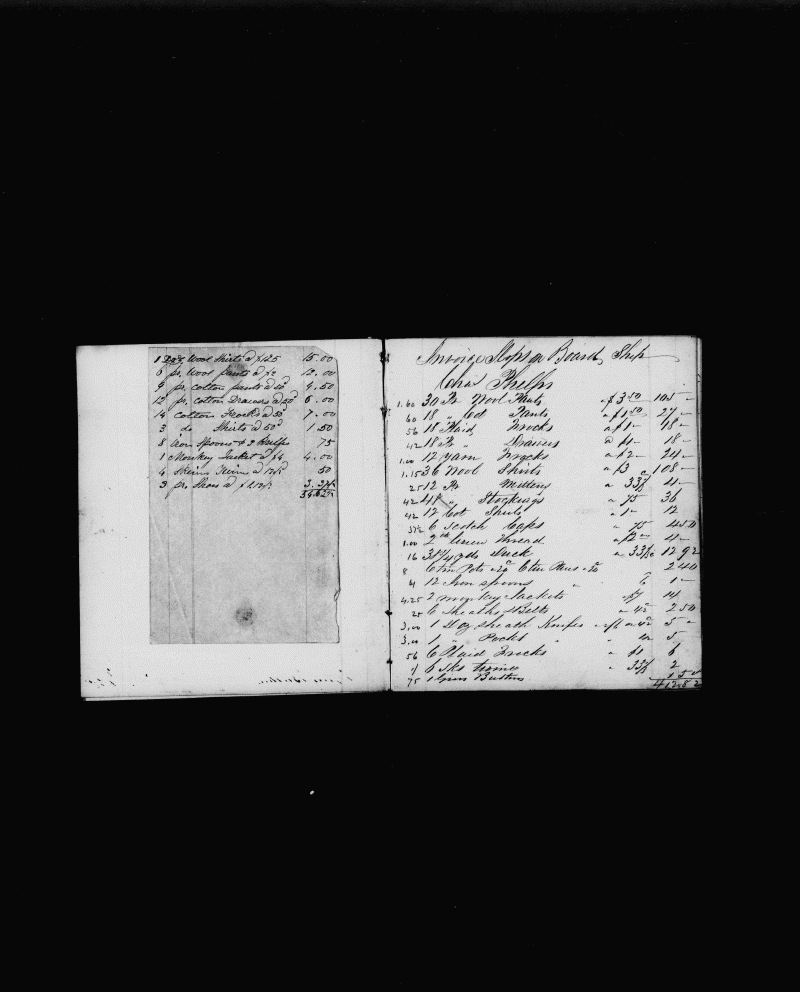 1 Doz Wool Shirts a $1.25 15.00
6 pr. Wool pants a $2 12.00
9 pr. cotton pants a 50 4.50
12 pr. cotton Drawers a 50 6.00
14 cotton Frocks a 50 7.00
3 do Shirts a 50 1.50
8 Iron Spoons & Knifes 75
1 Monkey Jacket a $4 4.00
4 Skeins a 12½ 50
3 pr. Shoes a
Invoice Slops on Board Ship
Chas Phelps
1.60 30 Pr Wool Pants a $3 50 105 -
60 18 " Cot Pants a $1 50 27 -
56 18 Plaid Frocks a $1 - 18 -
42 18 Pr " Drawers a $1 - 18 -
1.00 12 Yarn Frocks a $2 - 24 -
1.15 36 Wool Shirts a $3 108 -
25 12 Pr Mittens a 33⅓ 4 -
42 48 " Stockings a 75 36
42 12 Cot Shirts a 1 - 12
37½ 6 Scotch Caps a 75 4 50
1.00 2 lb Linen Thread a $2 - 4 -
16 yds Duck a 33⅓ c 12 92
8 6 tin Pots a 20 6 tin Pans a 20 2 40
4 12 Iron spoons " 1 -
4.25 2 monkey Jackets a $7 14
25 6 Sheaths & Belts a 42 2 50
3.00 1 Doz Sheath Knifes 5 -
3.00 1 " Pocket " " 5 -
56 6 Plaid Frocks a $1 6
6 Sks a 33⅓ 2
75 1 Gross Buttons 1 50